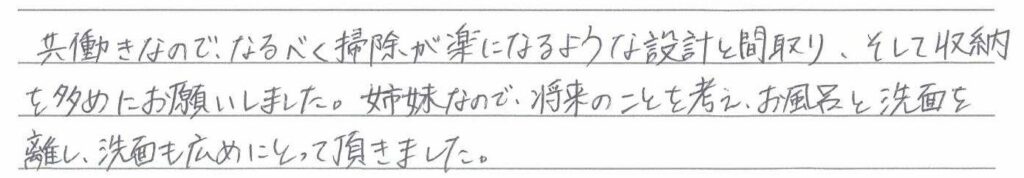 共働きなので、なるべく掃除が楽になるような設計と間取り、そして収納
を多めにお願いしました。姉妹なので、将来のことを考え、お風呂と洗面を
離し、洗面も広めにとって頂きました。